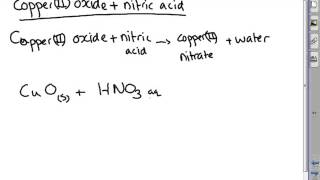 Copper(II) oxide + nitric acid
Copper(II) oxide + nitric acid → copper(II) nitrate + water
CuO(s) + HNO3 aq